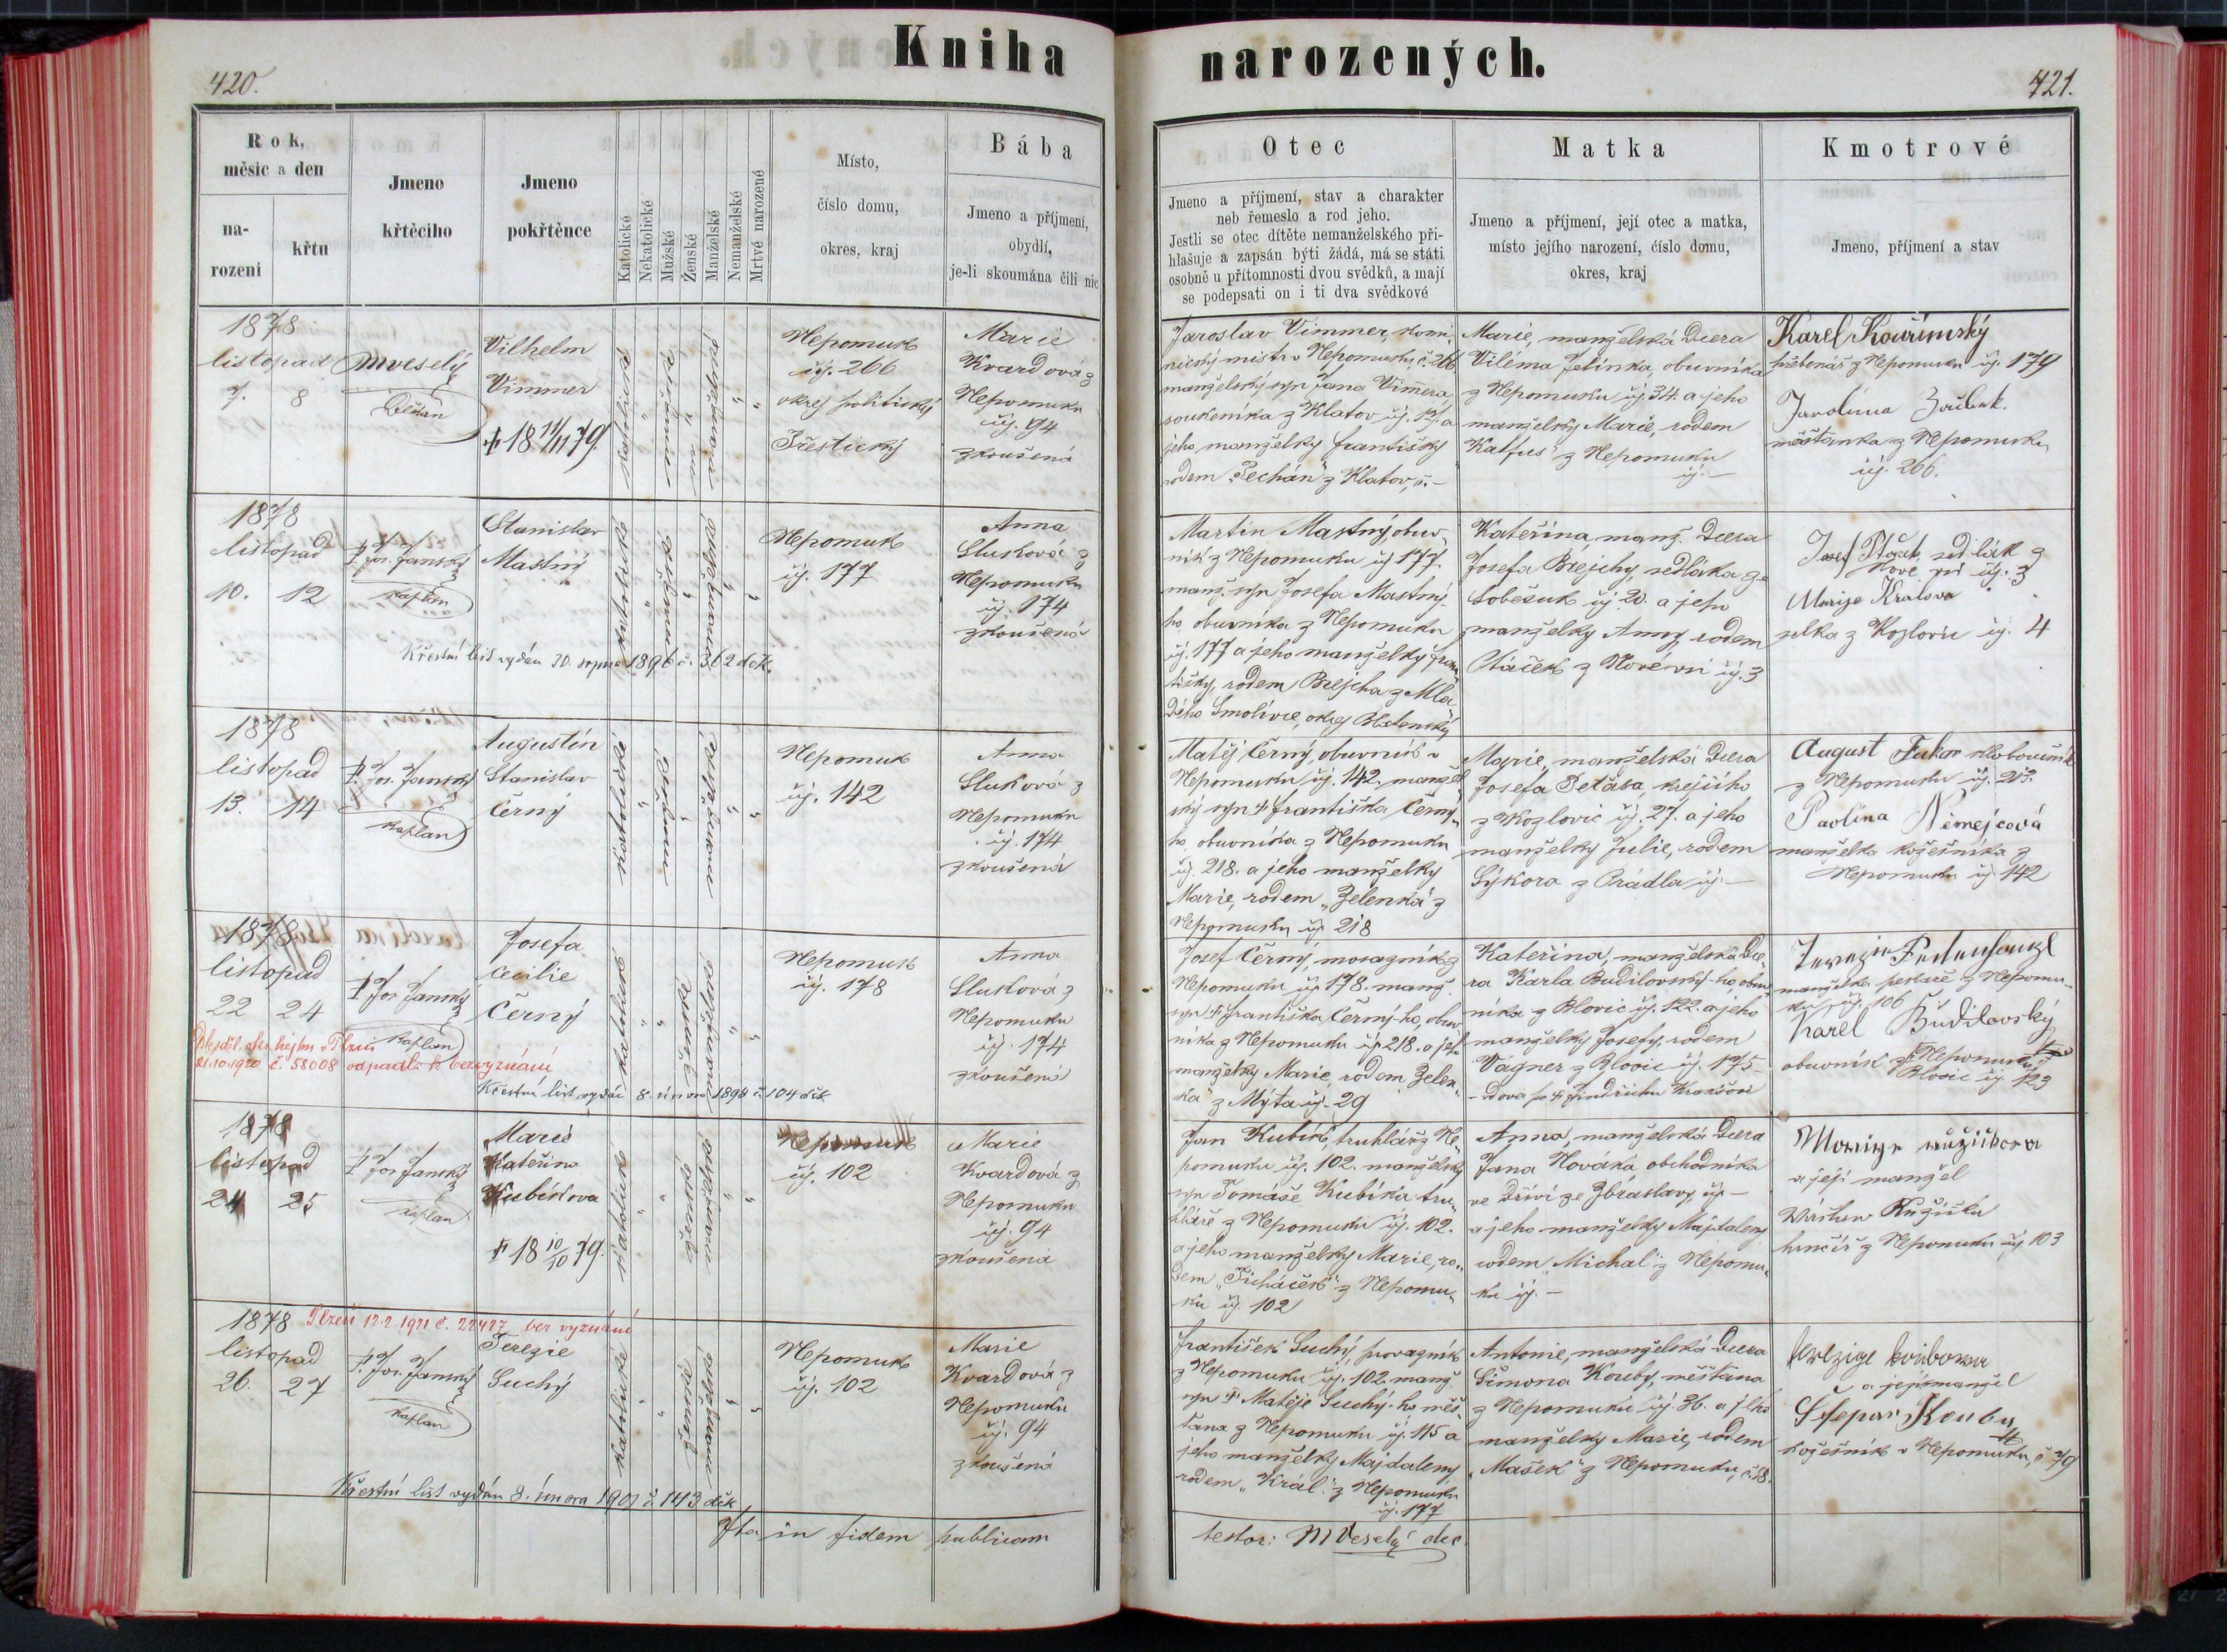 Kniha
420.
Rok,
měsíc a den
na-
rození
křtu
Jmeno
křtěcího
Jmeno
pokřtěnce
Katolické
Nekatolické
Mužské
Ženské
Manželské
Nemanželské
Mrtvé narozené
Místo,
číslo domu,
okres, kraj
Bába
Jmeno a příjmení,
obydlí,
je-li skoumána čili nic
1878
listopad
7. 8
MVeselý
Děkan
Vilhelm
Vimmer
† 18 11/11 79.
katolické
mužské
manželské
Nepomuk
čj. 266
okres politický
Přeštický
Marie
Kvardová z
Nepomuku
čj. 94
zkoušená
1878
listopad
10. 12
P. Jos. Janský
kaplan
Stanislav
Mastný
katolické
mužské
manželské
Nepomuk
čj. 177
Anna
Sluková z
Nepomuku
čj. 174
zkoušená
Křestní list vydán 30. srpna 1896 č. 362 děk.
1878
listopad
13. 14
P. Jos. Janský
kaplan
Augustin
Stanislav
Černý
katolické
mužské
manželské
Nepomuk
čj. 142
Anna
Sluková z
Nepomuku
čj. 174
zkoušená
1878
listopad
22 24
P. Jos. Janský
kaplan
Josefa
Cecilie
Černý
katolické
ženské
manželské
Nepomuk
čj. 178
Anna
Sluková z
Nepomuku
čj. 174
zkoušená
Dle sděl. okr. hejtm. v Plzni
21.10.1920 č. 58008 odpadla k bezvyznání
Křestní list vydán 8. února 1898 č. 104 děk.
1878
listopad
24 25
P. Jos. Janský
kaplan
Marie
Kateřina
Kubíkova
† 18 10/10 79.
katolické
ženské
manželské
Nepomuk
čj. 102
Marie
Kvardová z
Nepomuku
čj. 94
zkoušená
1878 Plzeň 12.2.1921 č. 22427 bez vyznání
listopad
26. 27
P. Jos. Janský
kaplan
Terezie
Suchý
katolické
ženské
manželské
Nepomuk
čj. 102
Marie
Kvardová z
Nepomuku
čj. 94
zkoušená
Křestní list vydán 8. února 1901 č. 143 děk.
Ita in fidem publicam
narozených.
421.
Otec
Jmeno a příjmení, stav a charakter
neb řemeslo a rod jeho.
Jestli se otec dítěte nemanželského při-
hlašuje a zapsán býti žádá, má se státi
osobně u přítomnosti dvou svědků, a mají
se podepsati on i ti dva svědkové
Matka
Jmeno a příjmení, její otec a matka,
místo jejího narození, číslo domu,
okres, kraj
Kmotrové
Jmeno, příjmení a stav
Jaroslav Vimmer, komi-
nický mistr v Nepomuku, č. 266
manželský syn Jana Vimera,
soukeníka z Klatov čj. 17. a
jeho manželky Františky
rodem "Pechán" z Klatov, č. —
Marie, manželská dcera
Viléma Jelínka, obuvníka
z Nepomuku čj. 34. a jeho
manželky Marie, rodem
"Kalfus" z Nepomuku
čj. —
Karel Kouřimský
z Nepomuku čj. 179
Karolina
měšťanka z Nepomuku
čj. 266.
Martin Mastný, obuv-
ník z Nepomuku čj 177.
manž. syn Josefa Mastný-
ho, obuvníka z Nepomuku
čj. 177 a jeho manželky Fran-
tišky, rodem Brejcha z Mla-
dého Smolivce, okres Blatenský
Kateřina, manž. dcera
Josefa Brejchy, sedláka ze
Soběsuk čj 20. a jeho
manželky Anny, rodem
Ptáček z Nové vsi čj. 3
Josef Ptáček sedlák z
Nové vsi čj. 3
Marije Kralova
selka z Kozlovic čj. 4
Matěj Černý, obuvník v
Nepomuku čj. 142. manžel-
ský syn † Františka Černý-
ho, obuvníka z Nepomuku
čj. 218. a jeho manželky
Marie, rodem „Zelenka" z
Nepomuku čj. 218
Marie, manželská dcera
Josefa Petása, krejčího
z Kozlovic čj. 27. a jeho
manželky Julie, rodem
Sýkora z Prádla čj. —
August Fuker kloboučník
z Nepomuku čj. 213.
Paolina Němejcová
manželka kožešníka z
Nepomuku čj 142
Josef Černý, mosazník z
Nepomuku čj. 178. manž.
syn † Františka Černý-ho, obuv-
níka z Nepomuku čj. 218. a jeho
manželky Marie, rodem Zelen-
ka z Mýta čj. 29
Kateřina, manželská dce-
ra Karla Budilovský-ho, obuv-
níka z Blovic čj. 122. a jeho
manželky Josefy, rodem
Vágner z Blovic čj. 175
vdova po † Jindřichu
Terezie
manželka z Nepomu-
ku, čj. 106
Karel Budilovský
obuvník z Nepomuku
Blovic čj. 123
Jan Kubík, truhlář z Ne-
pomuku čj. 102. manželský
syn Tomáše Kubíka tru-
hláře z Nepomuku čj. 102.
a jeho manželky Marie, ro-
dem „Ticháček" z Nepomu-
ku čj. 102
Anna, manželská dcera
Jana Nováka obchodníka
ve dříví ze Zbraslavy, čj. —
a jeho manželky Majdaleny
rodem „Michal" z Nepomu-
ku čj. —
Marije Růžičkova
a její manžel
Růžička
hrnčíř z Nepomuku čj 103
František Suchý, provazník
z Nepomuku čj. 102. manž.
syn † Matěje Suchý-ho měš-
ťana z Nepomuku čj. 115 a
jeho manželky Majdaleny,
rodem „Král" z Nepomuku
čj. 177
Antonie, manželská dcera
Šimona Kouby, měšťana
z Nepomuku čj. 36. a jeho
manželky Marie, rodem
„Mašek" z Nepomuku, č. 18.
Terezije Koubova
a její manžel
Štěpán Kouba
kožešník v Nepomuku, č 79
testor: MVeselý děk.